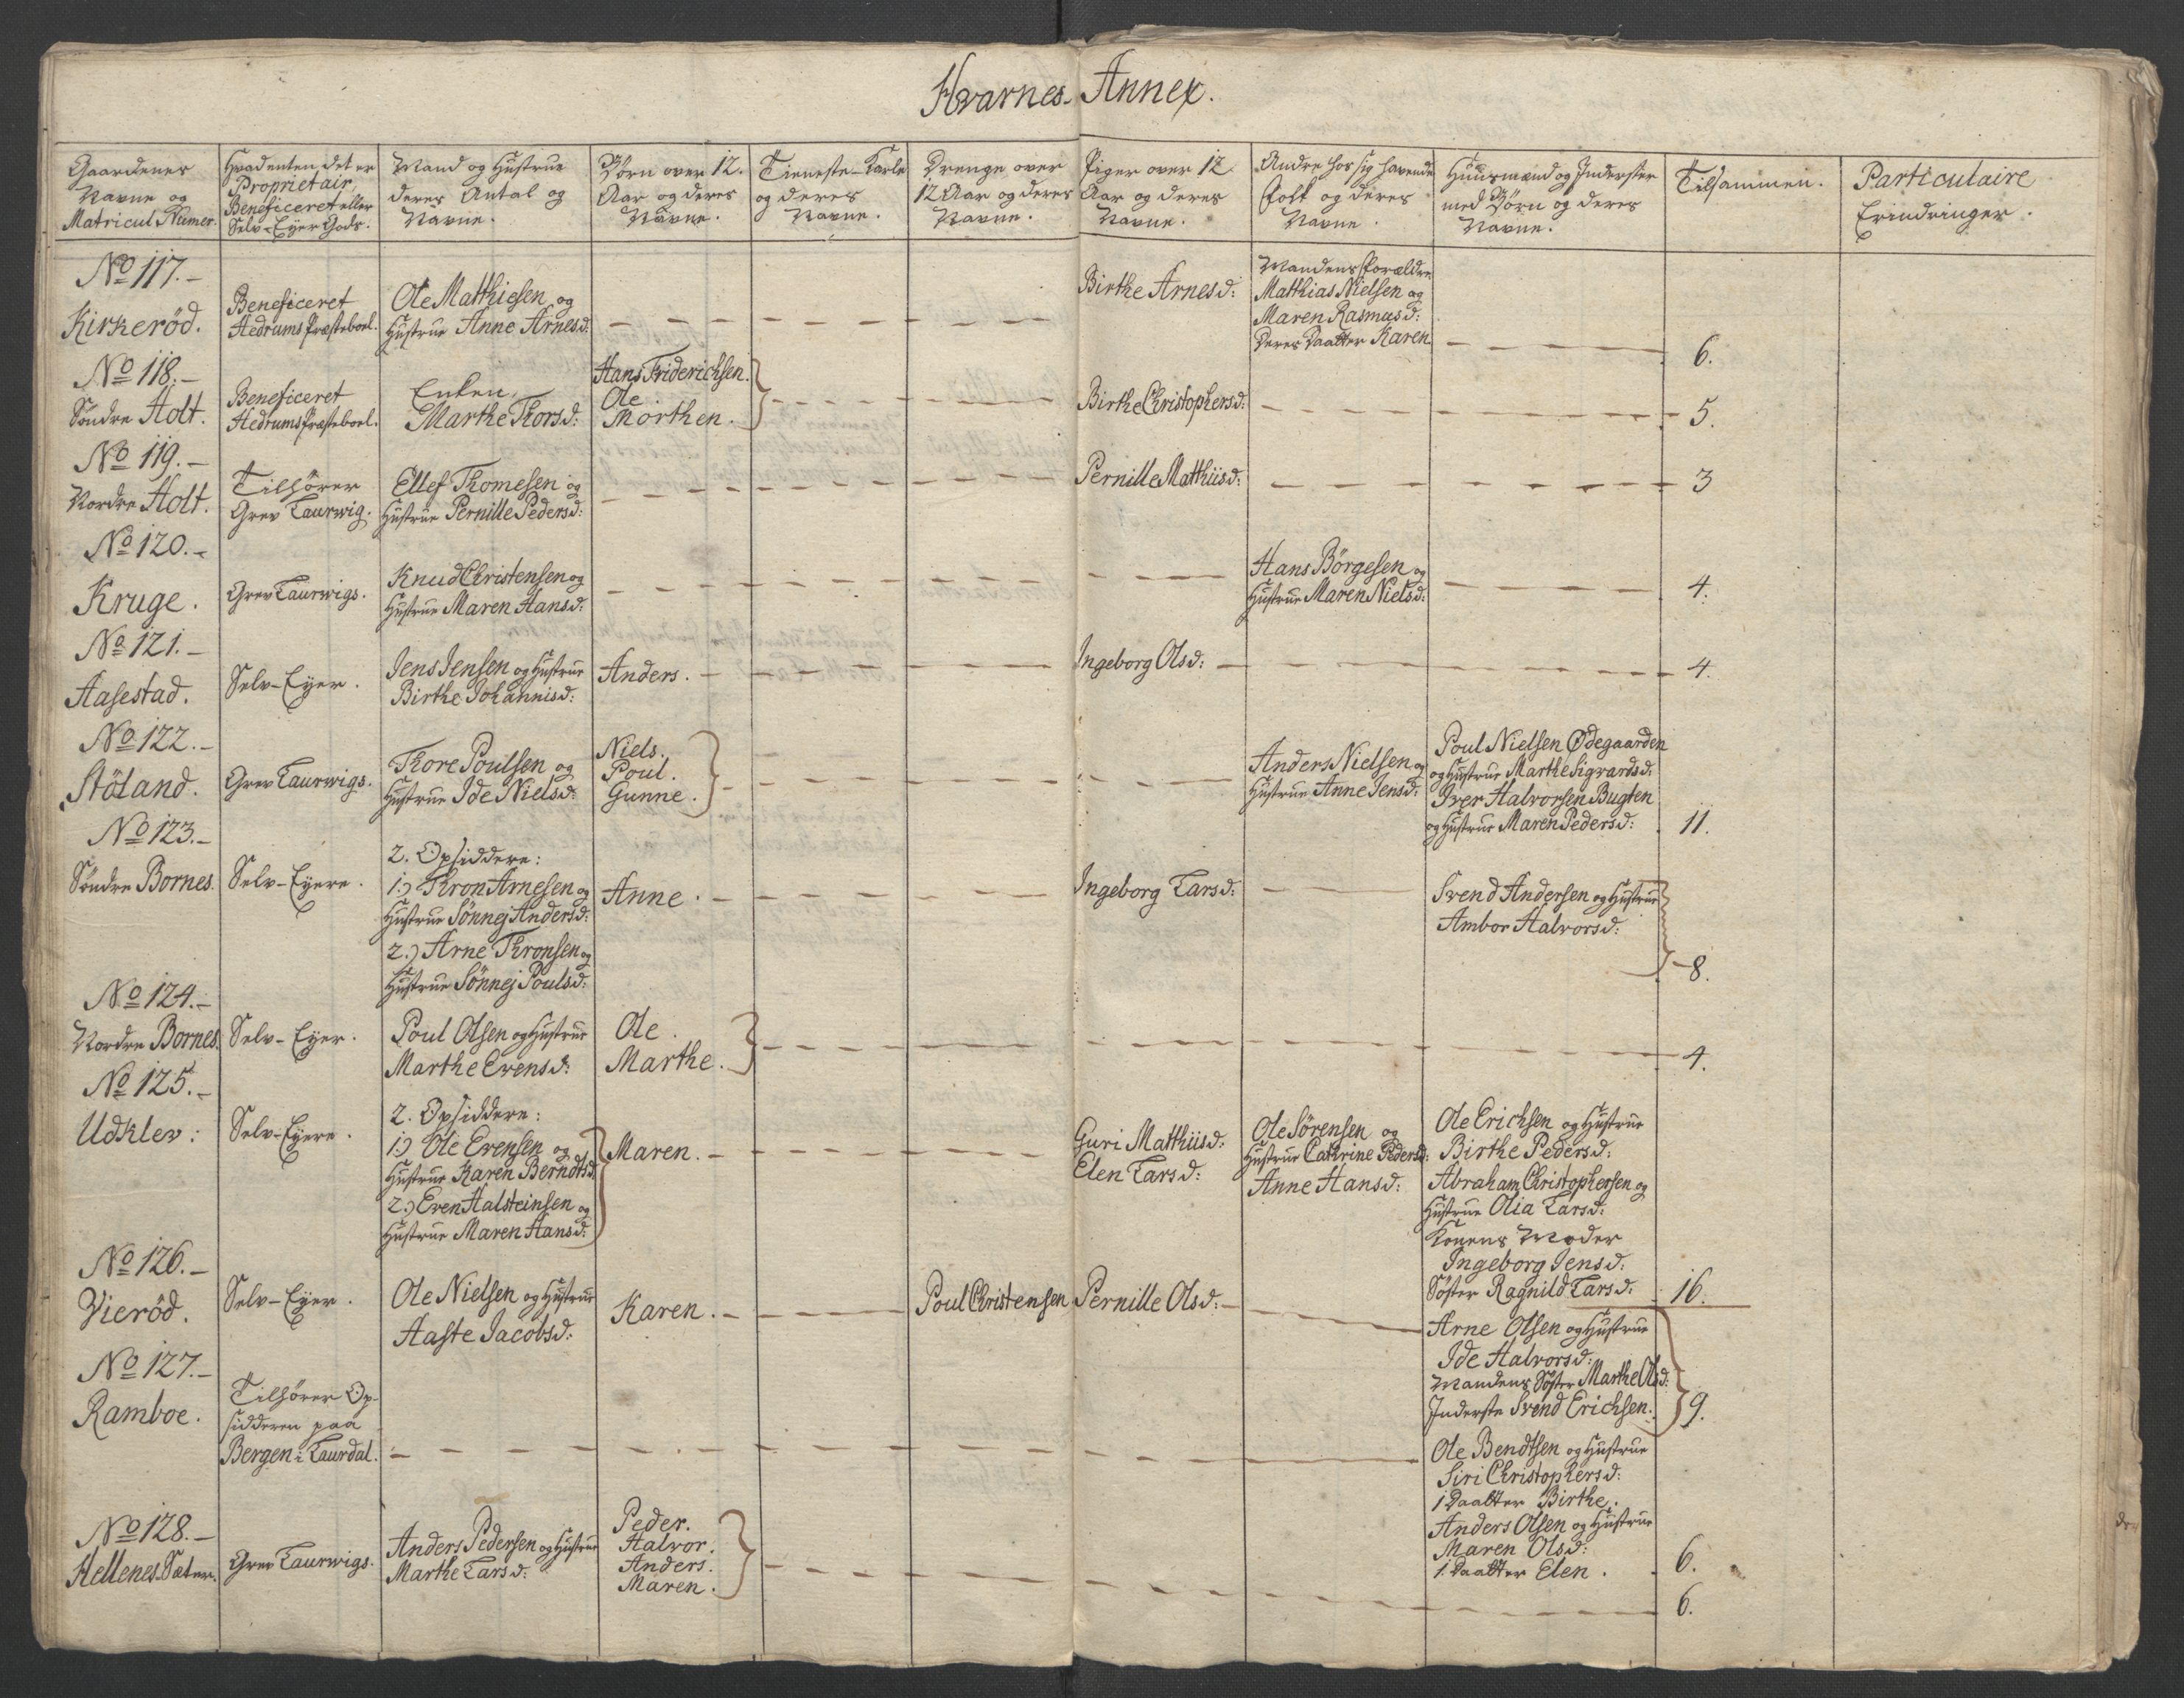 Hvarnes Annex.
Gaardenes
Navne og
Matricul Numer.
Hvadenten det er
Proprietair,
Beneficeret eller
Selv-Eyer Gods.
Mand og Hustrue
deres Antal og
Navne.
Börn over 12.
Aar og deres
Navne.
Tieneste-Karle
og deres
Navne.
Drenge over
12 Aar og deres
Navne.
Piger over 12
Aar og deres
Navne.
Andre hos sig havende
Folk og deres
Navne.
Huusmænd og Inderster
med Börn og deres
Navne.
Tilsammen.
Particulaire
Erindringer.
No 117.-
Kirkeröd.
Beneficeret
Hedrums Præsteboel.
Ole Matthiesen og
Hustrue Anne Arnesd:
Birthe Arnesd:
Mandens Forældre
Matthias Nielsen og
Maren Rasmusd:
Deres Daatter Karen
6.
No 118.-
Söndre Holt.
Beneficeret
Hedrums Præsteboel.
Enken,
Marthe Thorsd:
Hans Friderichsen.
Ole.
Morthen.
Birthe Christophersd:
5.
No 119.-
Nordre Holt.
Tilhörer
Grev Laurwig.
Ellef Thomesen og
Hustrue Pernille Pedersd:
Pernille Matthiisd:
3
No 120.-
Kruge.
Grev Laurwigs.
Knud Christensen og
Hustrue Maren Hansd:
Hans Börgesen og
Hustrue Maren Nielsd:
4.
No 121.-
Aasestad.
Selv-Eyer.
Jens Jensen og Hustrue
Birthe Johannisd:
Anders.
Ingeborg Olsd:
4.
No 122.-
Stöland.
Grev Laurwigs.
Thore Poulsen og
Hustrue Ide Nielsd:
Niels.
Poul.
Gunne.
Anders Nielsen og
Hustrue Anne Jensd:
Poul Nielsen Ødegaarden
og Hustrue Marthe Sigvardsd:
Iver Halvorsen Bugten
og Hustrue Maren Pedersd:
11.
No 123.-
Söndre Bornes.
Selv-Eyere.
2. Opsiddere:
1.) Thron Arnesen og
Hustrue Sönnej Andersd:
2.) Arne Thronsen og
Hustrue Sönnej Poulsd:
Anne.
Ingeborg Larsd:
Svend Andersen og Hustrue
Ambor Halvorsd:
8.
No 124.-
Nordre Bornes.
Selv-Eyer.
Poul Olsen og Hustrue
Marthe Evensd:
Ole.
Marthe.
4.
No 125.-
Udklev:
Selv-Eyere.
2. Opsiddere:
1.) Ole Evensen og
Hustrue Karen Berndtsd.
2.) Even Halsteinsen og
Hustrue Maren Hansd:
Maren.
Guri Matthiisd:
Elen Larsd:
Ole Sörensen og
Hustrue Cathrine Pedersd:
Anne Hansd:
Ole Erichsen og Hustrue
Birthe Pedersd:
Abraham Christophersen og
Hustrue Olia Larsd:
Konens Moder
Ingeborg Jensd:
Söster Ragnild Larsd:
16.
No 126.-
Vieröd.
Selv-Eyer.
Ole Nielsen og Hustrue
Aaste Jacobsd:
Karen.
Poul Christensen
Pernille Olsd:
Arne Olsen og Hustrue
Ide Halvorsd:
Mandens Söster Marthe Olsd:
Inderste Svend Erichsen.
9.
No 127.-
Ramboe.
Tilhörer Op-
sidderen paa
Bergen i Laurdal.
Ole Bendtsen og Hustrue
Siri Christophersd:
1 Daatter Birthe.
Anders Olsen og Hustrue
Maren Olsd:
1. Daatter Elen.
6.
No 128.-
Hellenes Sæter.
Grev Laurwigs.
Anders Pedersen og Hustrue
Marthe Larsd:
Peder.
Halvor.
Anders.
Maren.
6.